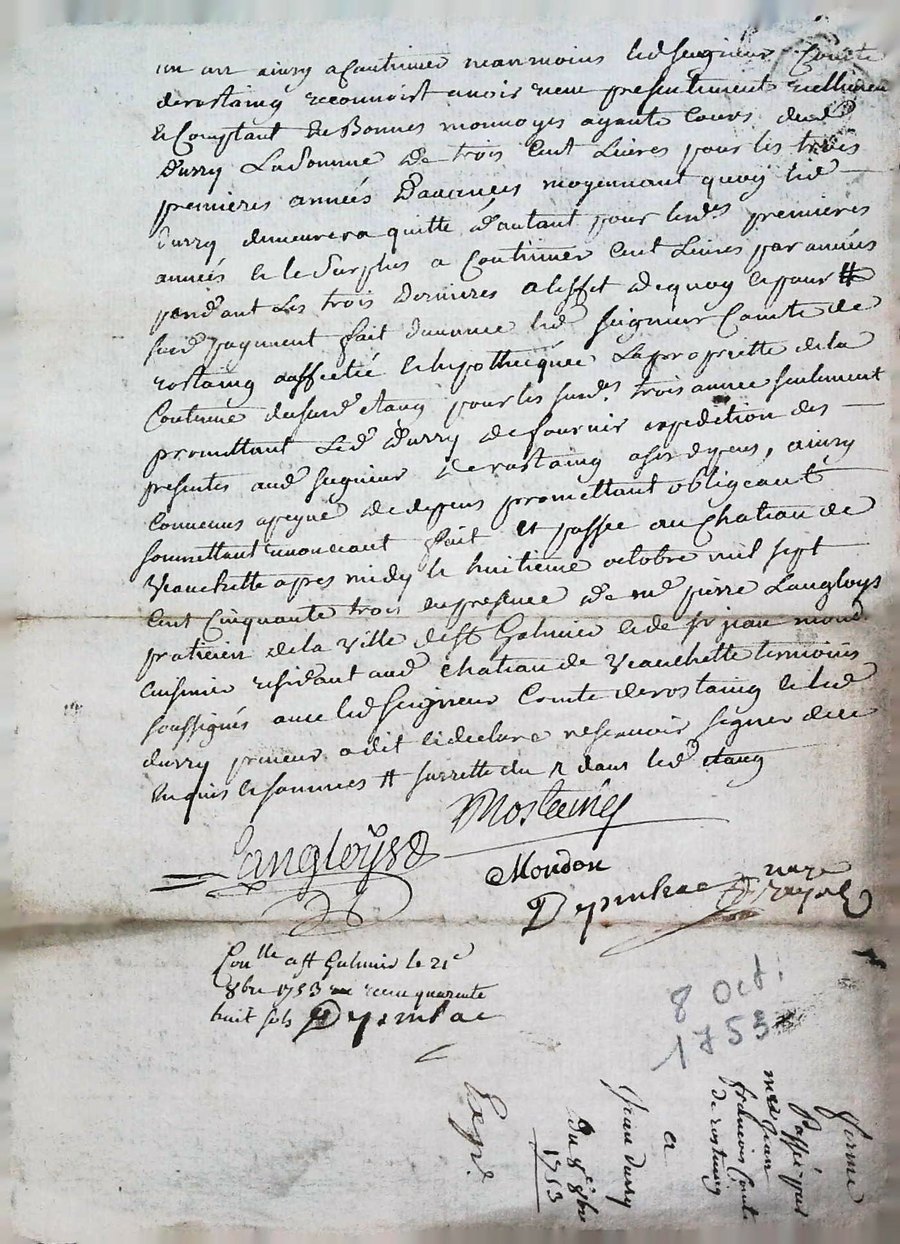 un an ainsy a Continuer neanmoins led seigneur Comte
de rostaing reconnoist avoir receu presentement reellement
et Comptant en Bonnes monnoyes ayants Cours dud
Durry La Somme de trois Cent Livres pour les trois
premieres années D'avances moyennant quoy led
Durry demeurera quitte d'autant pour lesd premieres
années et le Surplus a Continuer Cent Livres par années
pendant Les trois Dernieres a l'effet de quoy et pour #
sur payment fait d'avance led seigneur Comte de
rostaing a affecté et hypothequée La propriette de la
Contenue dud etang pour les susd. trois année seulement
promettant Led Durry de fournir expedition des
presentes aud seigneur de rostaing a ses depens, ainsy
Convenus a peyne de depens promettant obligeant
soumettant renonceant fait et passée au Chatiau de
Veauchette apres midy le huitieme octobre mil sept
Cent Cinquante trois en presence de me pierre Langloys
praticien de la Ville de st Galmier et de sr jean mond
Cuisinier residant aud Chatiau de Veauchette temoins
soussignés avec led seigneur Comte de rostaing et led
durry preneur a dit et declaré ne scavoir signer de ce
Enquis et sommes # dans led etang
Langloys
Mondon
Coulle a st Galmier le 21e
8bre 1753 receu quarente
huit sols
8 Oct.
1753
ferme
Passée par
mre jean
francois Comte
de rostaing
a
Jean durry
Du 8e 8bre
1753